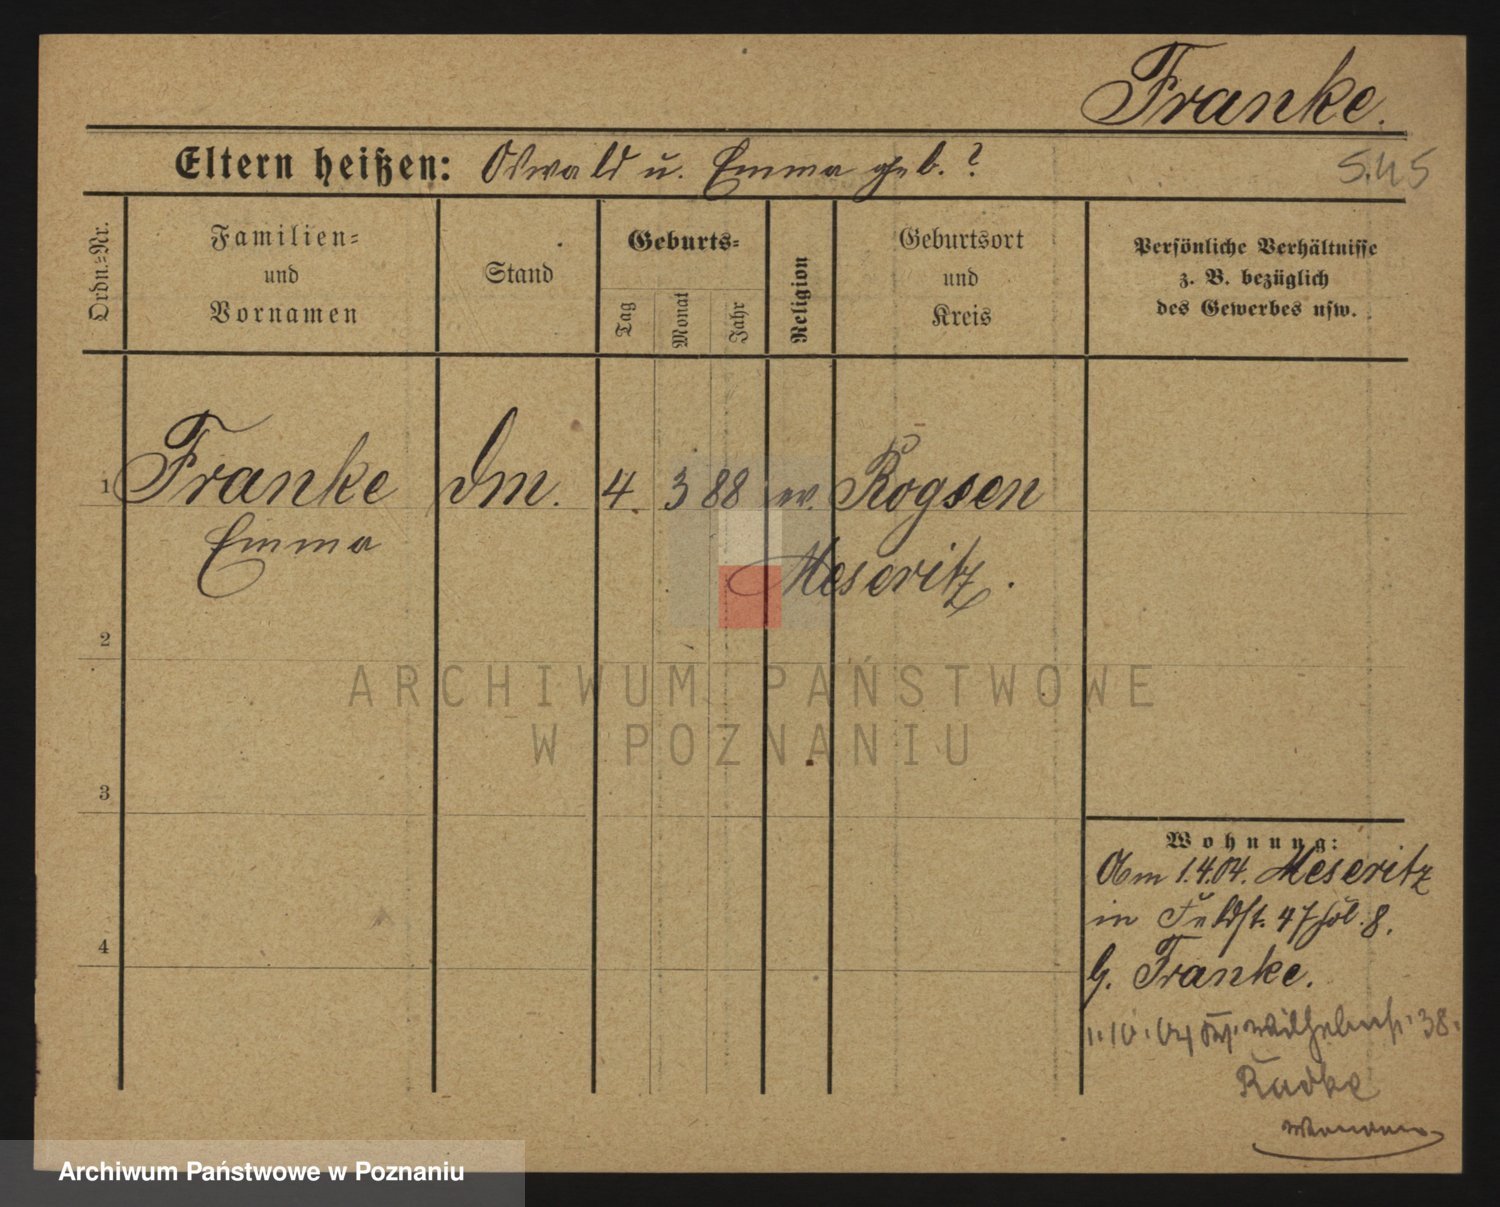 Franke.
Eltern heißen: Oswald u. Emma geb. ?
5.45
Ordn.=Nr.
Familien=
und
Vornamen
Stand
Geburts=
Tag
Monat
Jahr
Religion
Geburtsort
und
Kreis
Persönliche Verhältnisse
z. B. bezüglich
des Gewerbes usw.
1 Franke Dm. 4. 3 88 ev. Rogsen
Emma Meseritz.
2
ARCHIWUM PAŃSTWOWE
W POZNANIU
3
4
Wohnung:
Am 1.4.04. Meseritz
in Feldst. 47 8.
G. Franke.
1.10.04 Wilhelmst. 38.
Radke
Archiwum Państwowe w Poznaniu